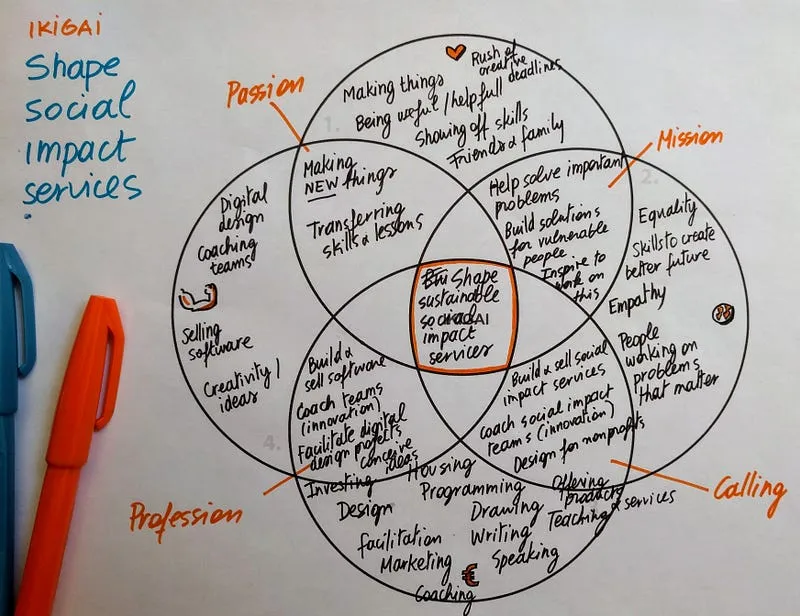 IKIGAI
Shape
social
impact
services
Passion
Rush of
creative
deadlines
Making things
Being useful/helpfull
Showing off skills
Friends & family
1.
Making
NEW things
Transferring
skills & lessons
Mission
2.
Help solve important
problems
Build solutions
for vulnerable
people
Inspire to
work on
this
Digital
design
Coaching
teams
Selling
software
Creativity/
ideas
Equality
Skills to create
better future
Empathy
People
working on
problems
that matter
Shape
sustainable
social
impact
services
Build &
sell software
Coach teams
(innovation)
Facilitate digital
design projects
conceive
ideas
4.
Build & sell social
impact services
Coach social impact
teams (innovation)
Design for nonprofits
Profession
Calling
Investing
Housing
Programming
Offering
products
& services
Design
Drawing
Teaching
Facilitation
Writing
Marketing
Speaking
€
Coaching